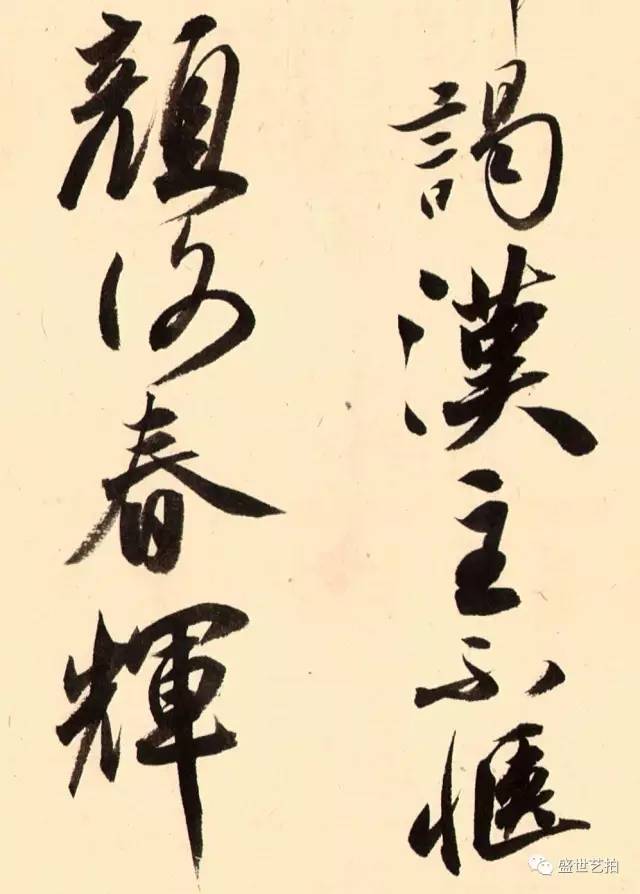 謁漢主不愜
顏春輝
盛世艺拍